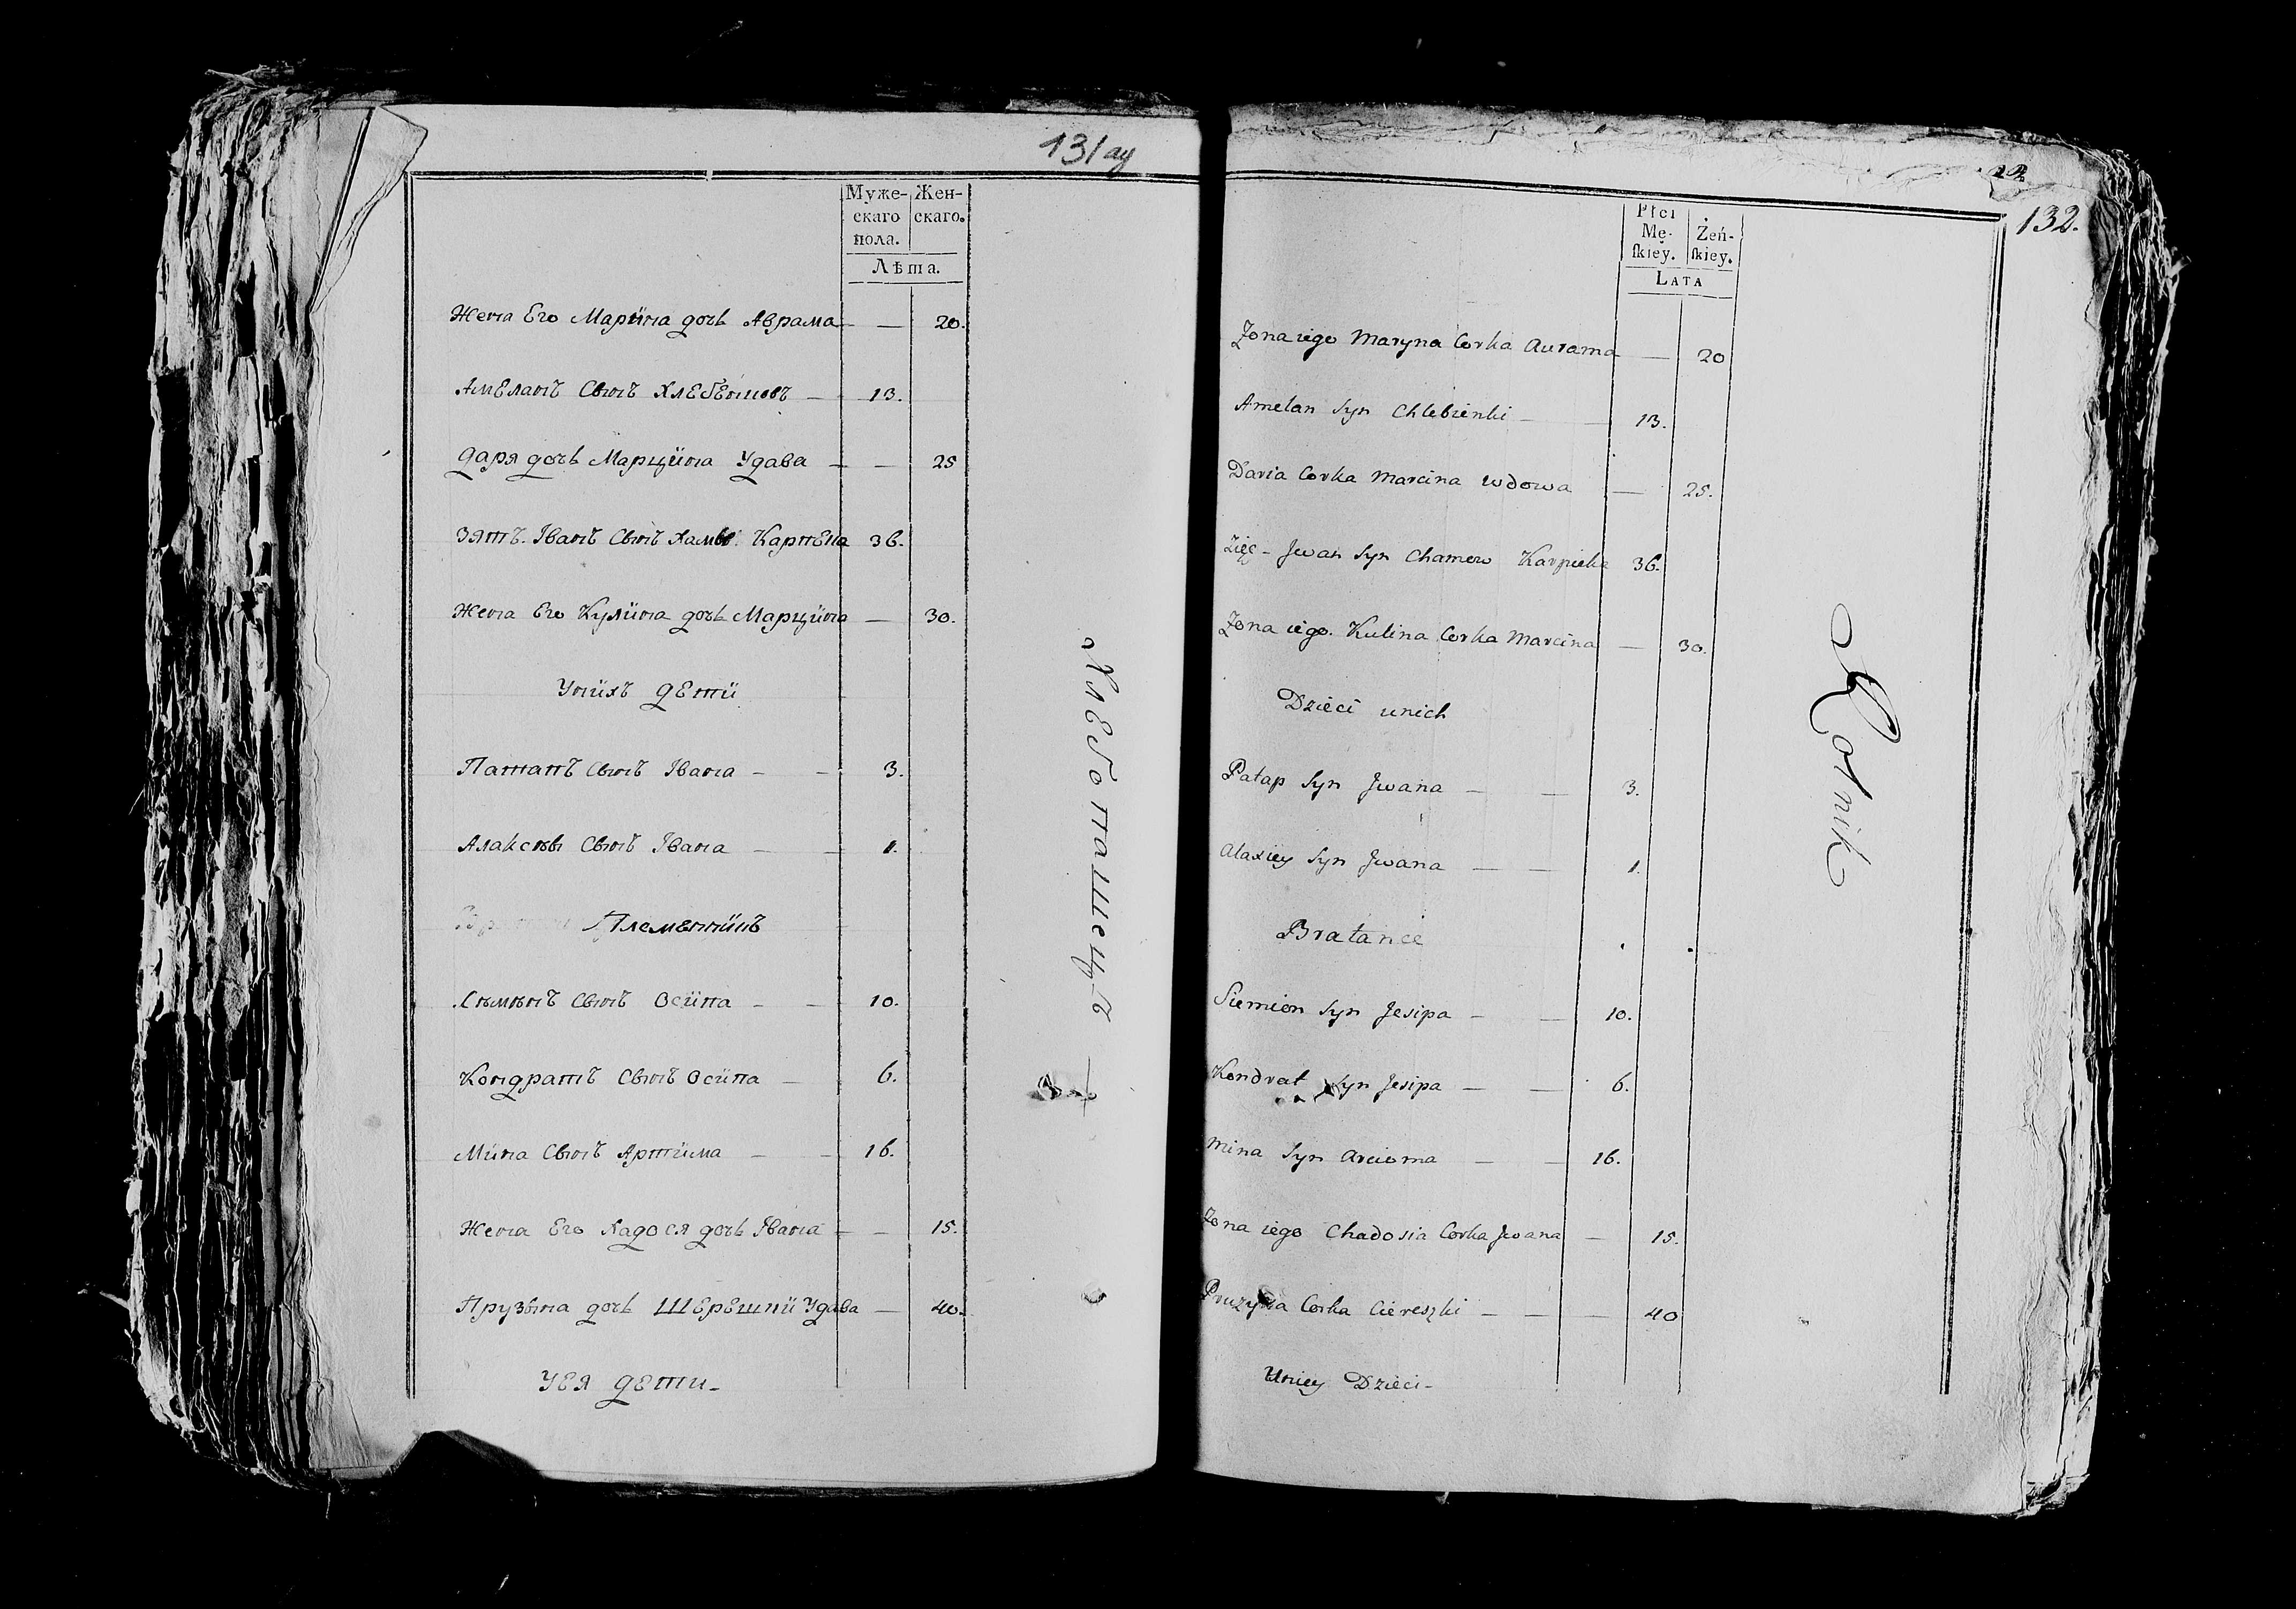 131 ау
Муже- Жен-
скаго скаго.
пола.
Лѣта.
Жена Его Марїна дочь Аврама — 20.
Амеланъ Сынъ Хлебенковъ — 13.
Даря дочь Марцїна Удава — — 25
Зятъ. Іванъ Сынъ Хамы. Карпека 36.
Жена Его Кулїна дочь Марцїна — 30.
Унїхъ Детї
Патапъ Сынъ Івана — — 3.
Алаксѣй Сынъ Івана — — 1.
Племеннїкъ
Сѣмѣнъ Сынъ Осїпа — — 10.
Кондратъ Сынъ Осїпа — 6.
Мїна Сынъ Артїма — — 16.
Жена Его Хадося дочь Івана — — 15.
Прузына дочь Терешкї Удава — 40.
Уея Дети-
Хлебопашецъ
132.
Płci
Mę- Żeń-
ſkiey. ſkiey.
LATA
Zona iego Maryna Corka Aurama — 20
Amelan Syn Chlebienki — — 13.
Daria Corka Marcina Wdowa — 25.
Zięć - Jwan Syn Chamew Karpieka 36.
Zona iego. Kulina Corka Marcina — 30.
Dzieci unich
Patap Syn Jwana — — 3.
Alaxiey Syn Jwana — — 1.
Bratance
Siemion Syn Jesipa — — 10.
Kondrat Syn Jesipa — — 6.
Mina Syn Arcioma — — 16.
Zona iego Chadosia Corka Jwana — 15.
Pruzyna Corka Ciereszki — — — 40
Uniey Dzieci-
Rolnik